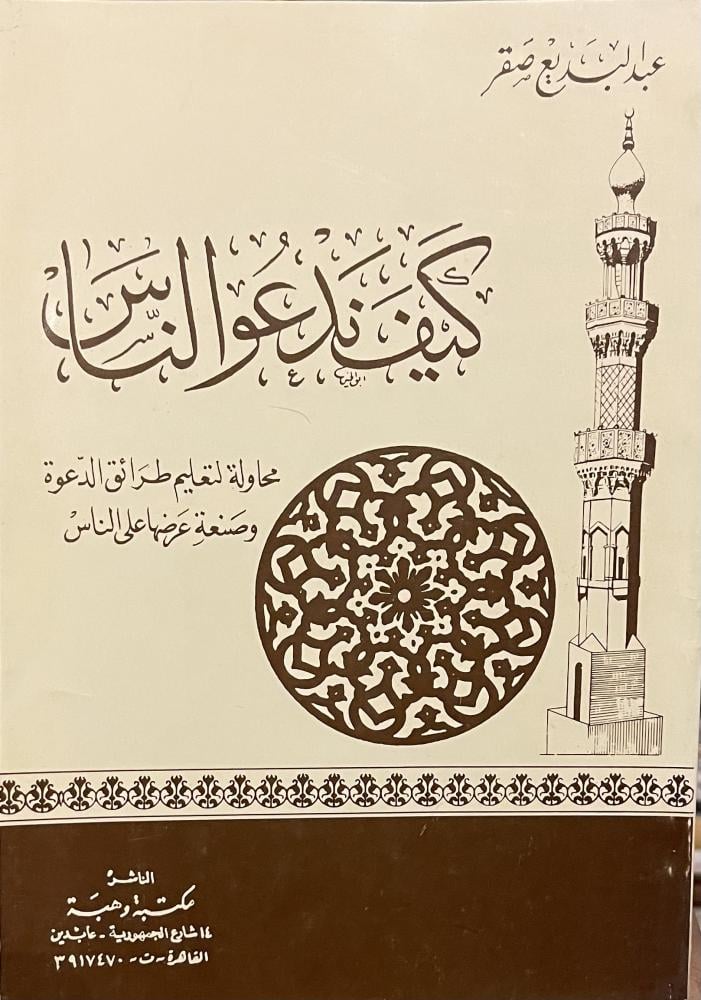 عبدالبديع صقر
كَيفَ نَدعُو النَّاسَ
محاولة لتعليم طرَائق الدّعوة
وصَنعةِ عَرضها على الناسْ
الناشر
مكتبة وهبَة
١٤ شارع الجمهورية - عابدين
القاهرة - ت - ٣٩١٧٤٧٠